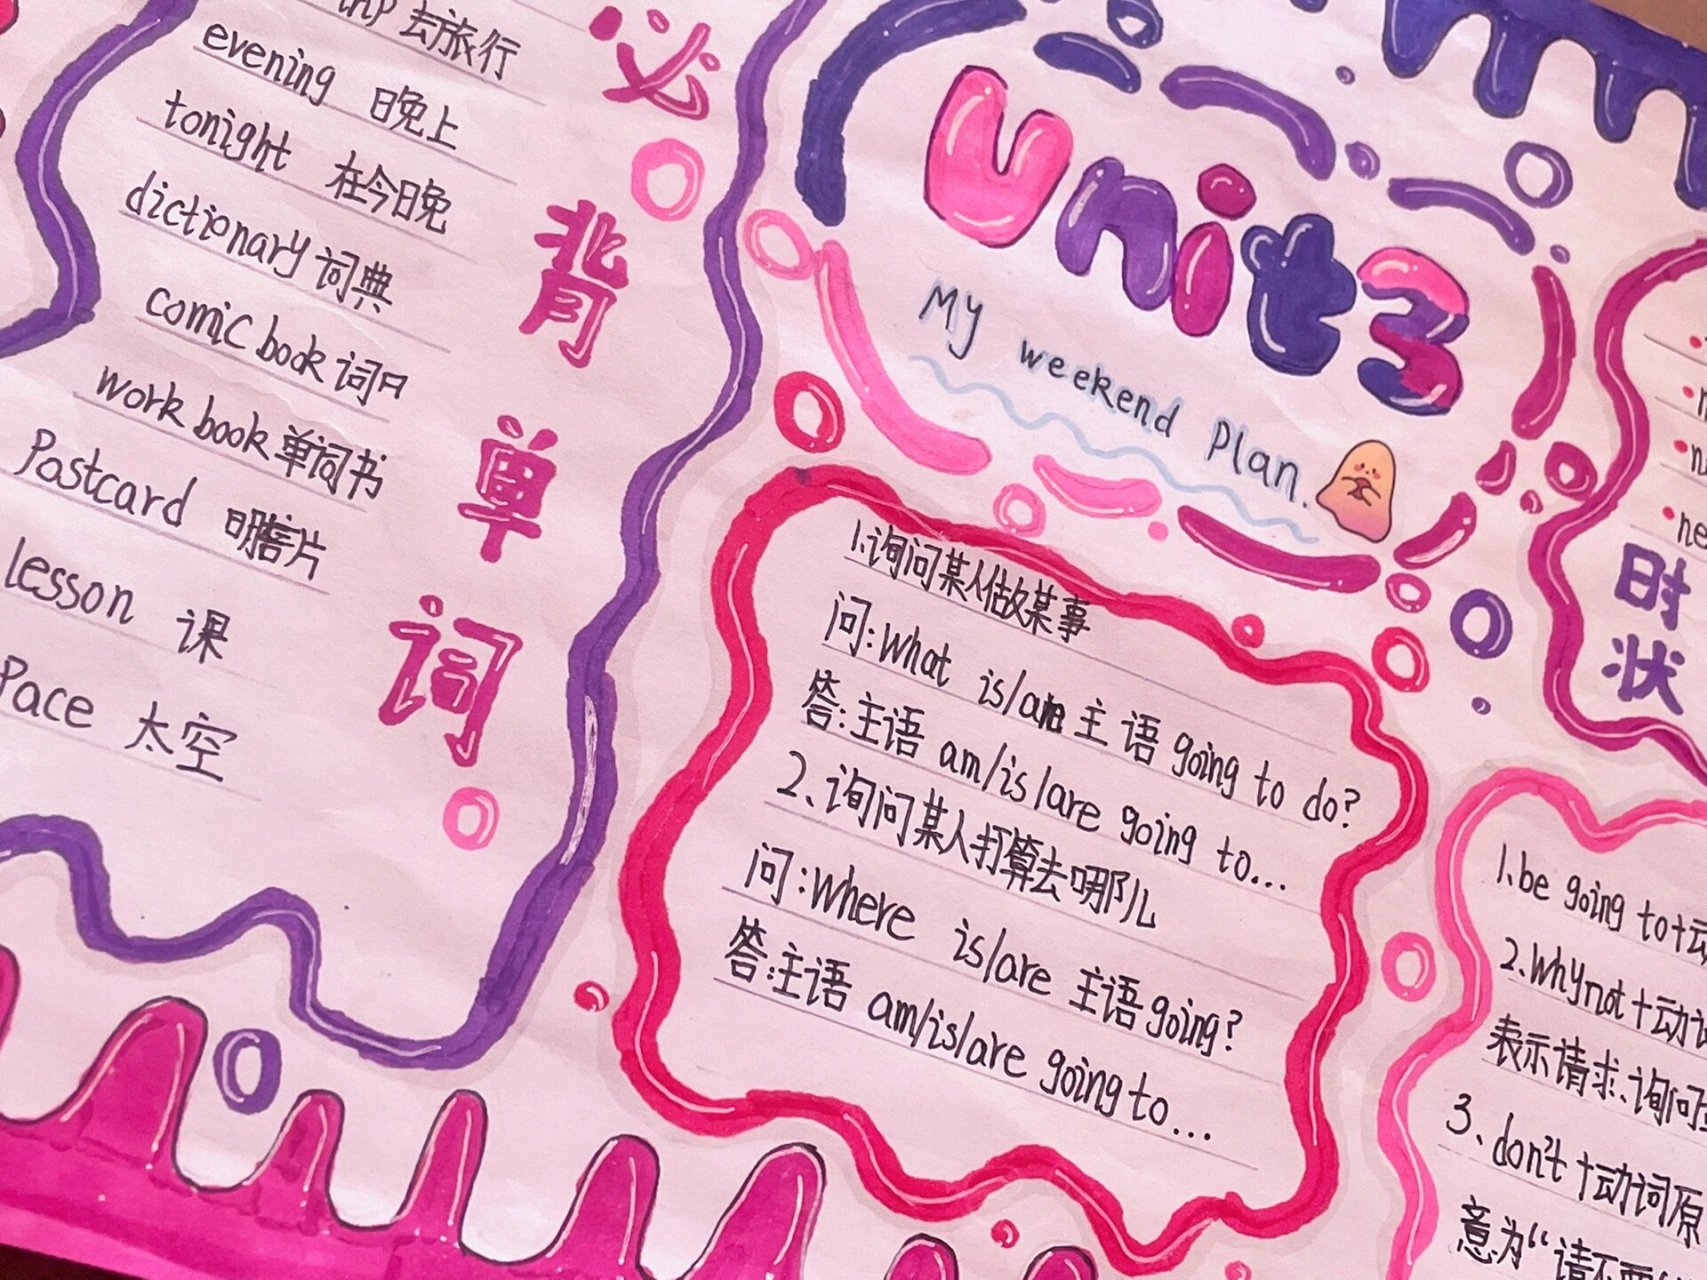 trip 去旅行
evening 日晚上
tonight 在今日晚
dictionary 词典
comic book
workbook 单词书
Postcard 片
lesson 课
Pace 太空
必背单词
Unit3
My weekend plan.
1.询问某人做某事
问:What is/are 主语 going to do?
答:主语 am/is/are going to...
2、询问某人打算去哪儿
问:Where is/are 主语 going?
答:主语 am/is/are going to...
ne
时状
1.be going to+动
2.Why not+动词
表示请求、询问
3、don't+动词原
意为“请不要